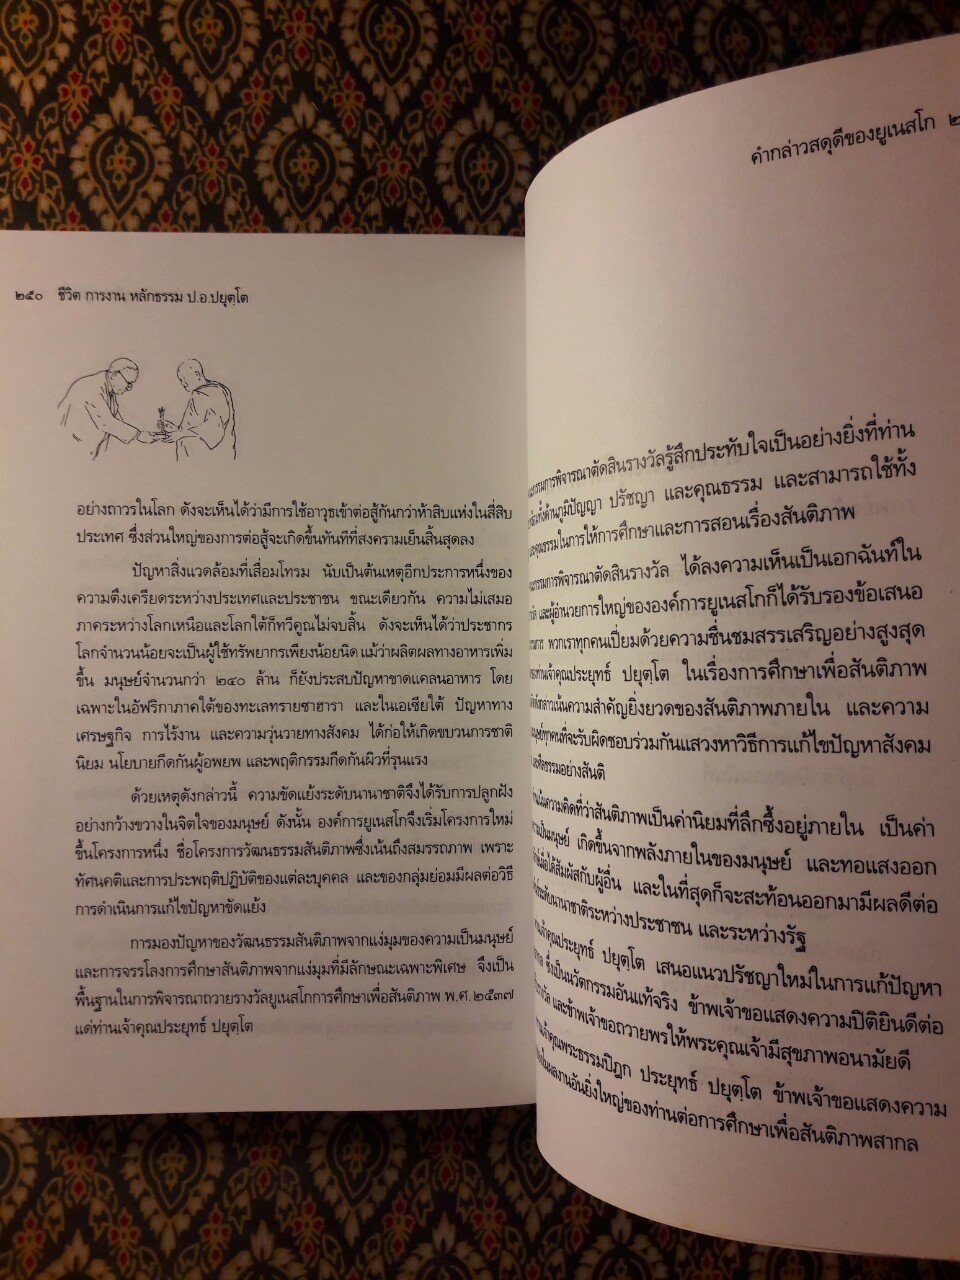 ๒๕๐ ชีวิต การงาน หลักธรรม ป.อ.ปยุตฺโต
อย่างถาวรในโลก ดังจะเห็นได้ว่ามีการใช้อาวุธเข้าต่อสู้กันกว่าห้าสิบแห่งในสี่สิบ
ประเทศ ซึ่งส่วนใหญ่ของการต่อสู้จะเกิดขึ้นทันทีที่สงครามเย็นสิ้นสุดลง
ปัญหาสิ่งแวดล้อมที่เสื่อมโทรม นับเป็นต้นเหตุอีกประการหนึ่งของ
ความตึงเครียดระหว่างประเทศและประชาชน ขณะเดียวกัน ความไม่เสมอ
ภาคระหว่างโลกเหนือและโลกใต้ก็ทวีคูณไม่จบสิ้น ดังจะเห็นได้ว่าประชากร
โลกจำนวนน้อยจะเป็นผู้ใช้ทรัพยากรเพียงน้อยนิด แม้ว่าผลิตผลทางอาหารเพิ่ม
ขึ้น มนุษย์จำนวนกว่า ๒๔๐ ล้าน ก็ยังประสบปัญหาขาดแคลนอาหาร โดย
เฉพาะในอัฟริกาภาคใต้ของทะเลทรายซาฮารา และในเอเซียใต้ ปัญหาทาง
เศรษฐกิจ การไร้งาน และความวุ่นวายทางสังคม ได้ก่อให้เกิดขบวนการชาติ
นิยม นโยบายกีดกันผู้อพยพ และพฤติกรรมกีดกันผิวที่รุนแรง
ด้วยเหตุดังกล่าวนี้ ความขัดแย้งระดับนานาชาติจึงได้รับการปลูกฝัง
อย่างกว้างขวางในจิตใจของมนุษย์ ดังนั้น องค์การยูเนสโกจึงเริ่มโครงการใหม่
ขึ้นโครงการหนึ่ง ชื่อโครงการวัฒนธรรมสันติภาพซึ่งเน้นถึงสมรรถภาพ เพราะ
ทัศนคติและการประพฤติปฏิบัติของแต่ละบุคคล และของกลุ่มย่อมมีผลต่อวิธี
การดำเนินการแก้ไขปัญหาขัดแย้ง
การมองปัญหาของวัฒนธรรมสันติภาพจากแง่มุมของความเป็นมนุษย์
และการจรรโลงการศึกษาสันติภาพจากแง่มุมที่มีลักษณะเฉพาะพิเศษ จึงเป็น
พื้นฐานในการพิจารณาถวายรางวัลยูเนสโกการศึกษาเพื่อสันติภาพ พ.ศ.๒๕๓๗
แด่ท่านเจ้าคุณประยุทธ์ ปยุตฺโต
คำกล่าวสดุดีของยูเนสโก
การพิจารณาตัดสินรางวัลรู้สึกประทับใจเป็นอย่างยิ่งที่ท่าน
ทั้งด้านภูมิปัญญา ปรัชญา และคุณธรรม และสามารถใช้ทั้ง
คุณธรรมในการให้การศึกษาและการสอนเรื่องสันติภาพ
กรรมการพิจารณาตัดสินรางวัล ได้ลงความเห็นเป็นเอกฉันท์ใน
และผู้อำนวยการใหญ่ขององค์การยูเนสโกก็ได้รับรองข้อเสนอ
พวกเราทุกคนเปี่ยมด้วยความชื่นชมสรรเสริญอย่างสูงสุด
ท่านเจ้าคุณประยุทธ์ ปยุตฺโต ในเรื่องการศึกษาเพื่อสันติภาพ
กล่าวเน้นความสำคัญยิ่งยวดของสันติภาพภายใน และความ
มนุษย์ทุกคนที่จะรับผิดชอบร่วมกันแสวงหาวิธีการแก้ไขปัญหาสังคม
และศีลธรรมอย่างสันติ
ความคิดที่ว่าสันติภาพเป็นค่านิยมที่ลึกซึ้งอยู่ภายใน เป็นค่า
ความเป็นมนุษย์ เกิดขึ้นจากพลังภายในของมนุษย์ และทอแสงออก
เมื่อได้สัมผัสกับผู้อื่น และในที่สุดก็จะสะท้อนออกมามีผลดีต่อ
ระดับนานาชาติระหว่างประชาชน และระหว่างรัฐ
เจ้าคุณประยุทธ์ ปยุตฺโต เสนอแนวปรัชญาใหม่ในการแก้ปัญหา
ซึ่งเป็นนวัตกรรมอันแท้จริง ข้าพเจ้าขอแสดงความปิติยินดีต่อ
และข้าพเจ้าขอถวายพรให้พระคุณเจ้ามีสุขภาพอนามัยดี
เจ้าคุณพระธรรมปิฎก ประยุทธ์ ปยุตฺโต ข้าพเจ้าขอแสดงความ
ในผลงานอันยิ่งใหญ่ของท่านต่อการศึกษาเพื่อสันติภาพสากล